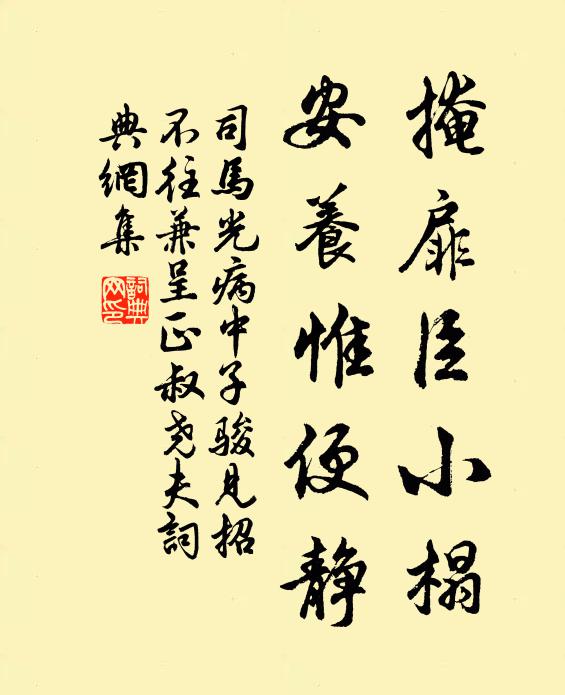 掩扉臣小榻
安養惟便静
司馬光病中子駿見招
不往兼呈正叔尧夫詞
典網集
詞典網印